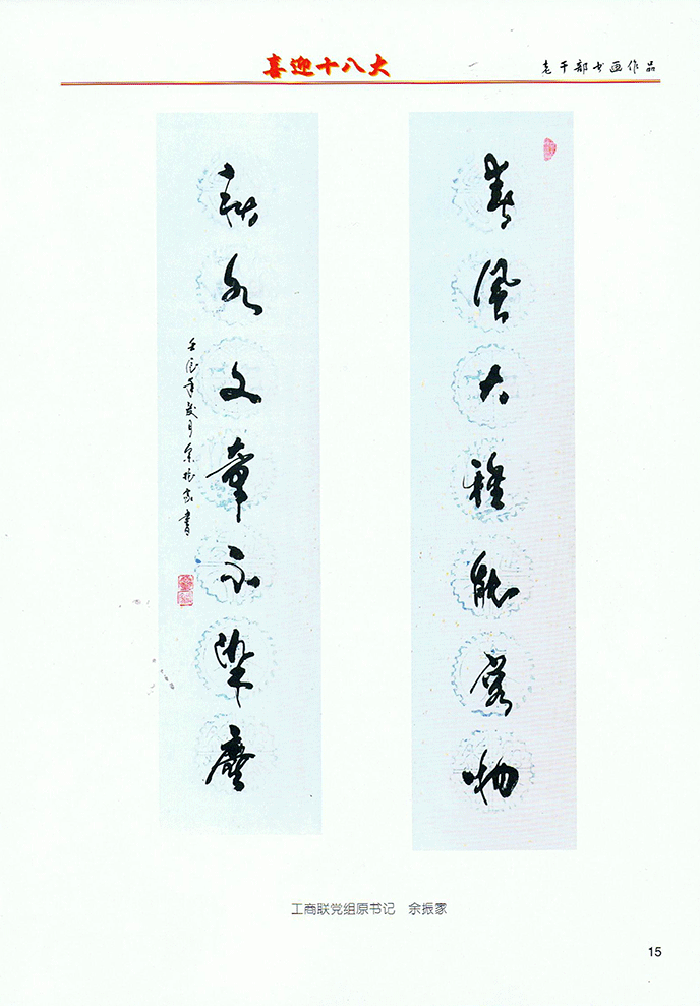 喜迎十八大
老干部书画作品
春风大雅能容物
秋水文章不染尘
工商联党组原书记 余振家
15